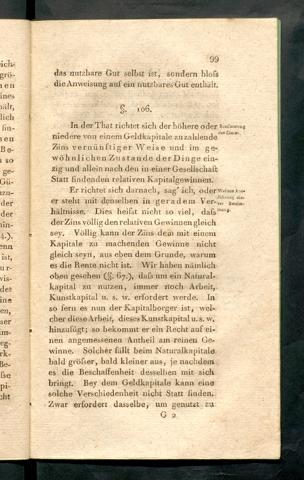 99
das nutzbare Gut selbst ist, sondern bloſs
die Anweisung auf ein nutzbares Gut enthält.
§. 106.
In der That richtet sich der höhere oder
niedere von einem Geldkapitale zu zahlende
Zins vernünftiger Weise und im ge-
wöhnlichen Zustande der Dinge einzig
und allein nach den in einer Gesellschaft
Statt findenden relativen Kapitalgewinnen.
Bestimmung
der Zinse.
Er richtet sich darnach, sag' ich, oder
er steht mit denselben in geradem Ver-
hältnisse. Dies heiſst nicht so viel, daſs
der Zins völlig den relativen Gewinnen gleich
sey. Völlig kann der Zins dem mit einem
Kapitale zu machenden Gewinne nicht
gleich seyn, aus eben dem Grunde, warum
es die Rente nicht ist. Wir haben nämlich
oben gesehen (§. 67.), daſs um ein Natural-
kapital zu nutzen, immer noch Arbeit,
Kunstkapital u. s. w. erfordert werde. In
so fern es nun der Kapitalborger ist, wel-
cher diese Arbeit, dieses Kunstkapital u. s. w.
hinzufügt; so bekommt er ein Recht auf ei-
nen angemessenen Antheil am reinen Ge-
winne. Solcher fällt beim Naturalkapitale
bald gröſser, bald kleiner aus, je nachdem
es die Beschaffenheit desselben mit sich
bringt. Bey dem Geldkapitale kann eine
solche Verschiedenheit nicht Statt finden.
Zwar erfordert dasselbe, um genutzt zu
G 2